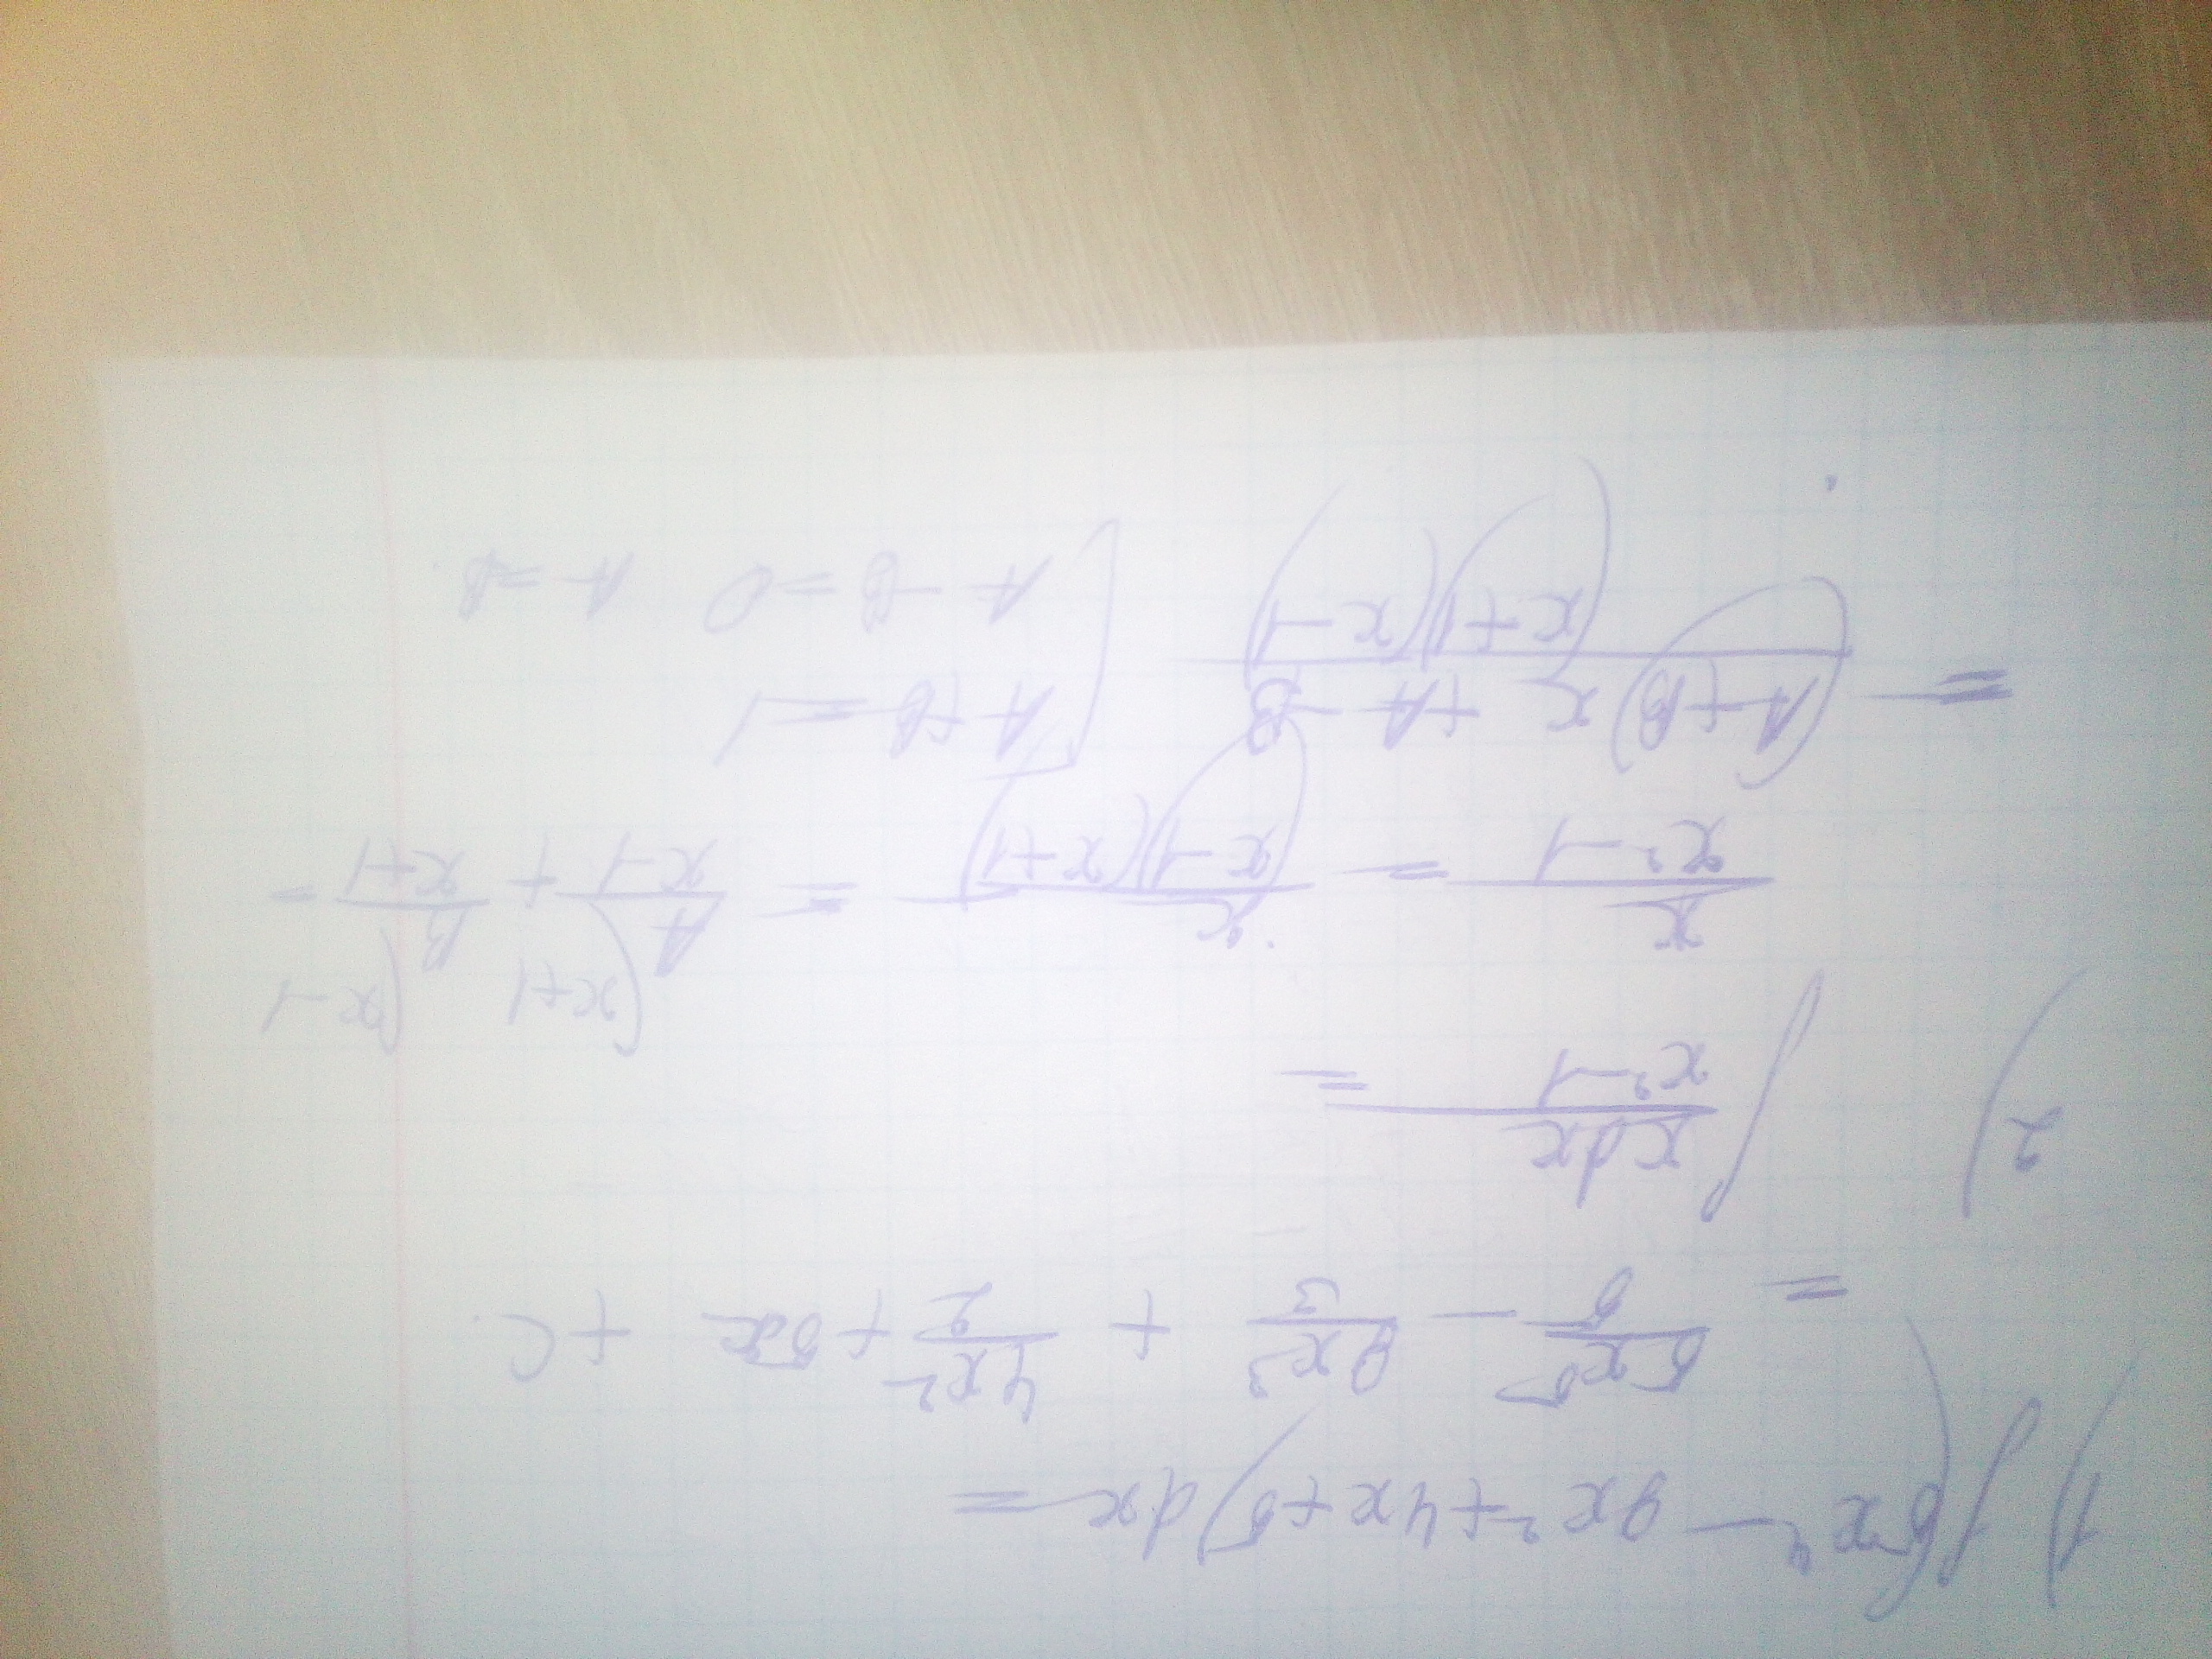 1) ∫(5x⁴ - 9x² + 4x + 5)dx =
= 5x⁵/5 - 9x³/3 + 4x²/2 + 5x + C.
2) ∫ xdx/x²-1 =
x/x²-1 = x/(x-1)(x+1) = A(x+1/x-1 + B(x-1/x+1 =
= (A+B)x + A - B/(x+1)(x-1) { A+B=1
A-B=0 A=B